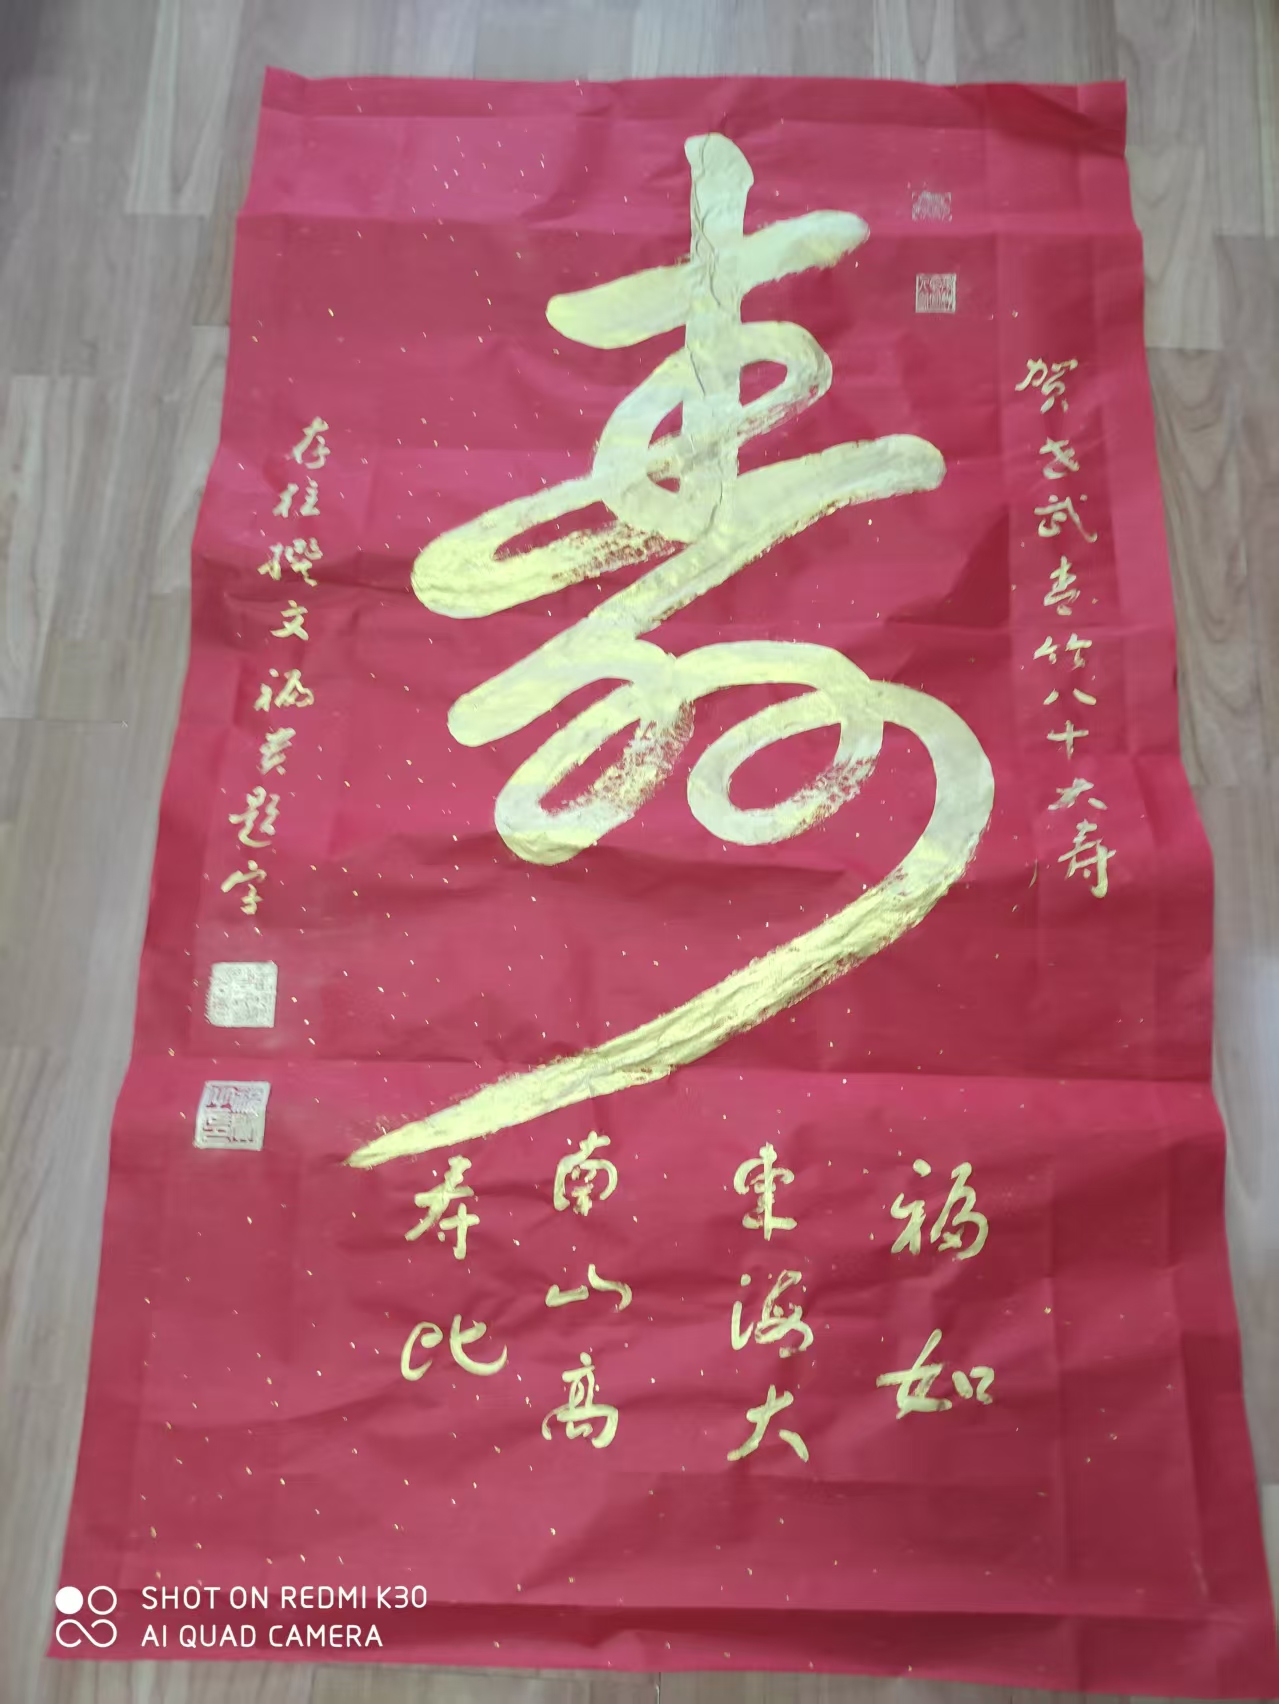 寿
贺老武春竹八十大寿
福如
东海大
寿比
南山高
存柱撰文福贵题字
SHOT ON REDMI K30
AI QUAD CAMERA